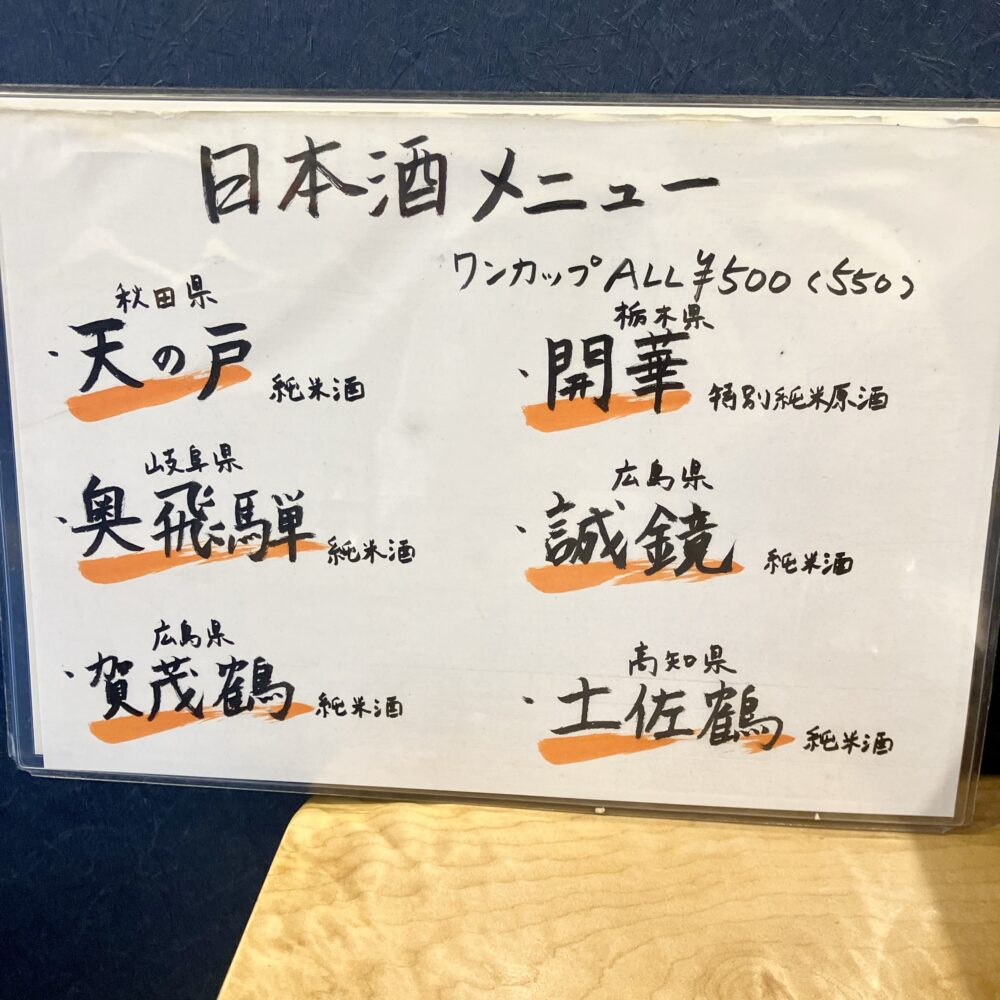 日本酒メニュー
ワンカップ ALL ¥500 (550)
秋田県
・天の戸 純米酒
栃木県
・開華 特別純米原酒
岐阜県
・奥飛騨 純米酒
広島県
・誠鏡 純米酒
広島県
・賀茂鶴 純米酒
高知県
・土佐鶴 純米酒